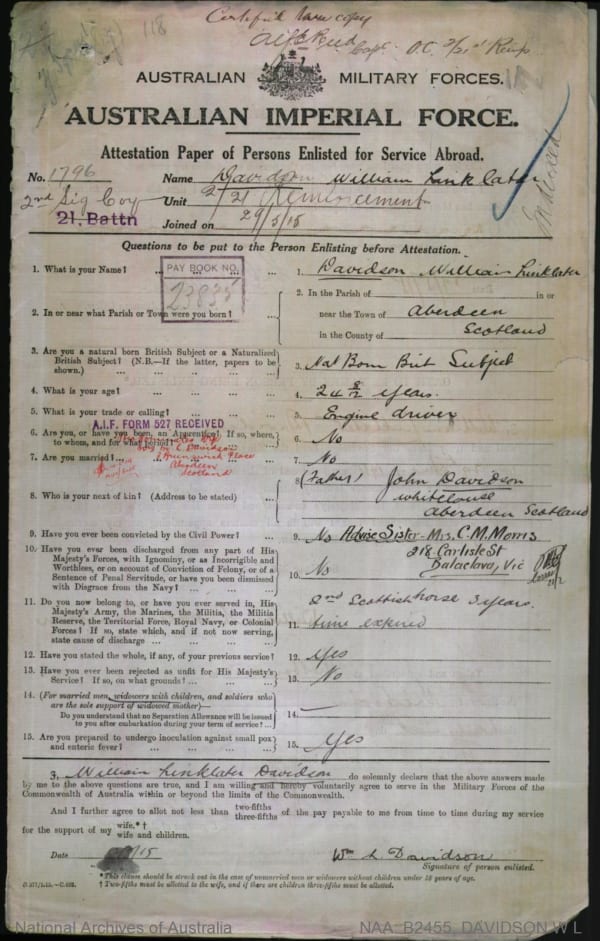 Certified true copy
Capt. O.C. 2/21st Reinf
118
AUSTRALIAN MILITARY FORCES.
AUSTRALIAN IMPERIAL FORCE.
Attestation Paper of Persons Enlisted for Service Abroad.
No. 1796 Name Davidson William Linklater
2nd Sig Coy Unit 2/21 Reinforcement
21. Battn
Joined on 29/5/15
Questions to be put to the Person Enlisting before Attestation.
1. What is your Name? ... 1. Davidson William Linklater
PAY BOOK NO.
23835
2. In or near what Parish or Town were you born? 2. In the Parish of in or
near the Town of Aberdeen
in the County of Scotland
3. Are you a natural born British Subject or a Naturalized
British Subject? (N.B.—If the latter, papers to be
shown.) 3. Nat Born Brit Subject
4. What is your age? 4. 24 8/12 years.
5. What is your trade or calling? 5. Engine driver
A.I.F. FORM 527 RECEIVED
6. Are you, or have you been, an Apprentice? If so, where,
to whom, and for what period? 6. No
C. Davidson
Brunswick Place
Aberdeen
Scotland
7. Are you married? 7. No
8. Who is your next of kin? (Address to be stated) 8. (Father) John Davidson
Whitehouse
Aberdeen Scotland
9. Have you ever been convicted by the Civil Power? 9. No Advise Sister - Mrs. C. M. Morris
218 Carlisle St
Balaclava, Vic
10. Have you ever been discharged from any part of His
Majesty's Forces, with Ignominy, or as Incorrigible and
Worthless, or on account of Conviction of Felony, or of a
Sentence of Penal Servitude, or have you been dismissed
with Disgrace from the Navy? 10. No
11. Do you now belong to, or have you ever served in, His
Majesty's Army, the Marines, the Militia, the Militia
Reserve, the Territorial Force, Royal Navy, or Colonial
Forces? If so, state which, and if not now serving,
state cause of discharge 11. 2nd Scottish horse 3 years.
time expired
12. Have you stated the whole, if any, of your previous service? 12. Yes
13. Have you ever been rejected as unfit for His Majesty's
Service? If so, on what grounds? 13. No
14. (For married men, widowers with children, and soldiers who
are the sole support of widowed mother)—
Do you understand that no Separation Allowance will be issued
to you after embarkation during your term of service? 14. —
15. Are you prepared to undergo inoculation against small pox
and enteric fever? 15. Yes
I, William Linklater Davidson do solemnly declare that the above answers made
by me to the above questions are true, and I am willing and hereby voluntarily agree to serve in the Military Forces of the
Commonwealth of Australia within or beyond the limits of the Commonwealth.
And I further agree to allot not less than two-fifths three-fifths of the pay payable to me from time to time during my service
for the support of my wife.*† wife and children.
Date /15 Wm L Davidson
Signature of person enlisted.
* This clause should be struck out in the case of unmarried men or widowers without children under 18 years of age.
† Two-fifths must be allotted to the wife, and if there are children three-fifths must be allotted.
National Archives of Australia NAA: B2455, DAVIDSON W L